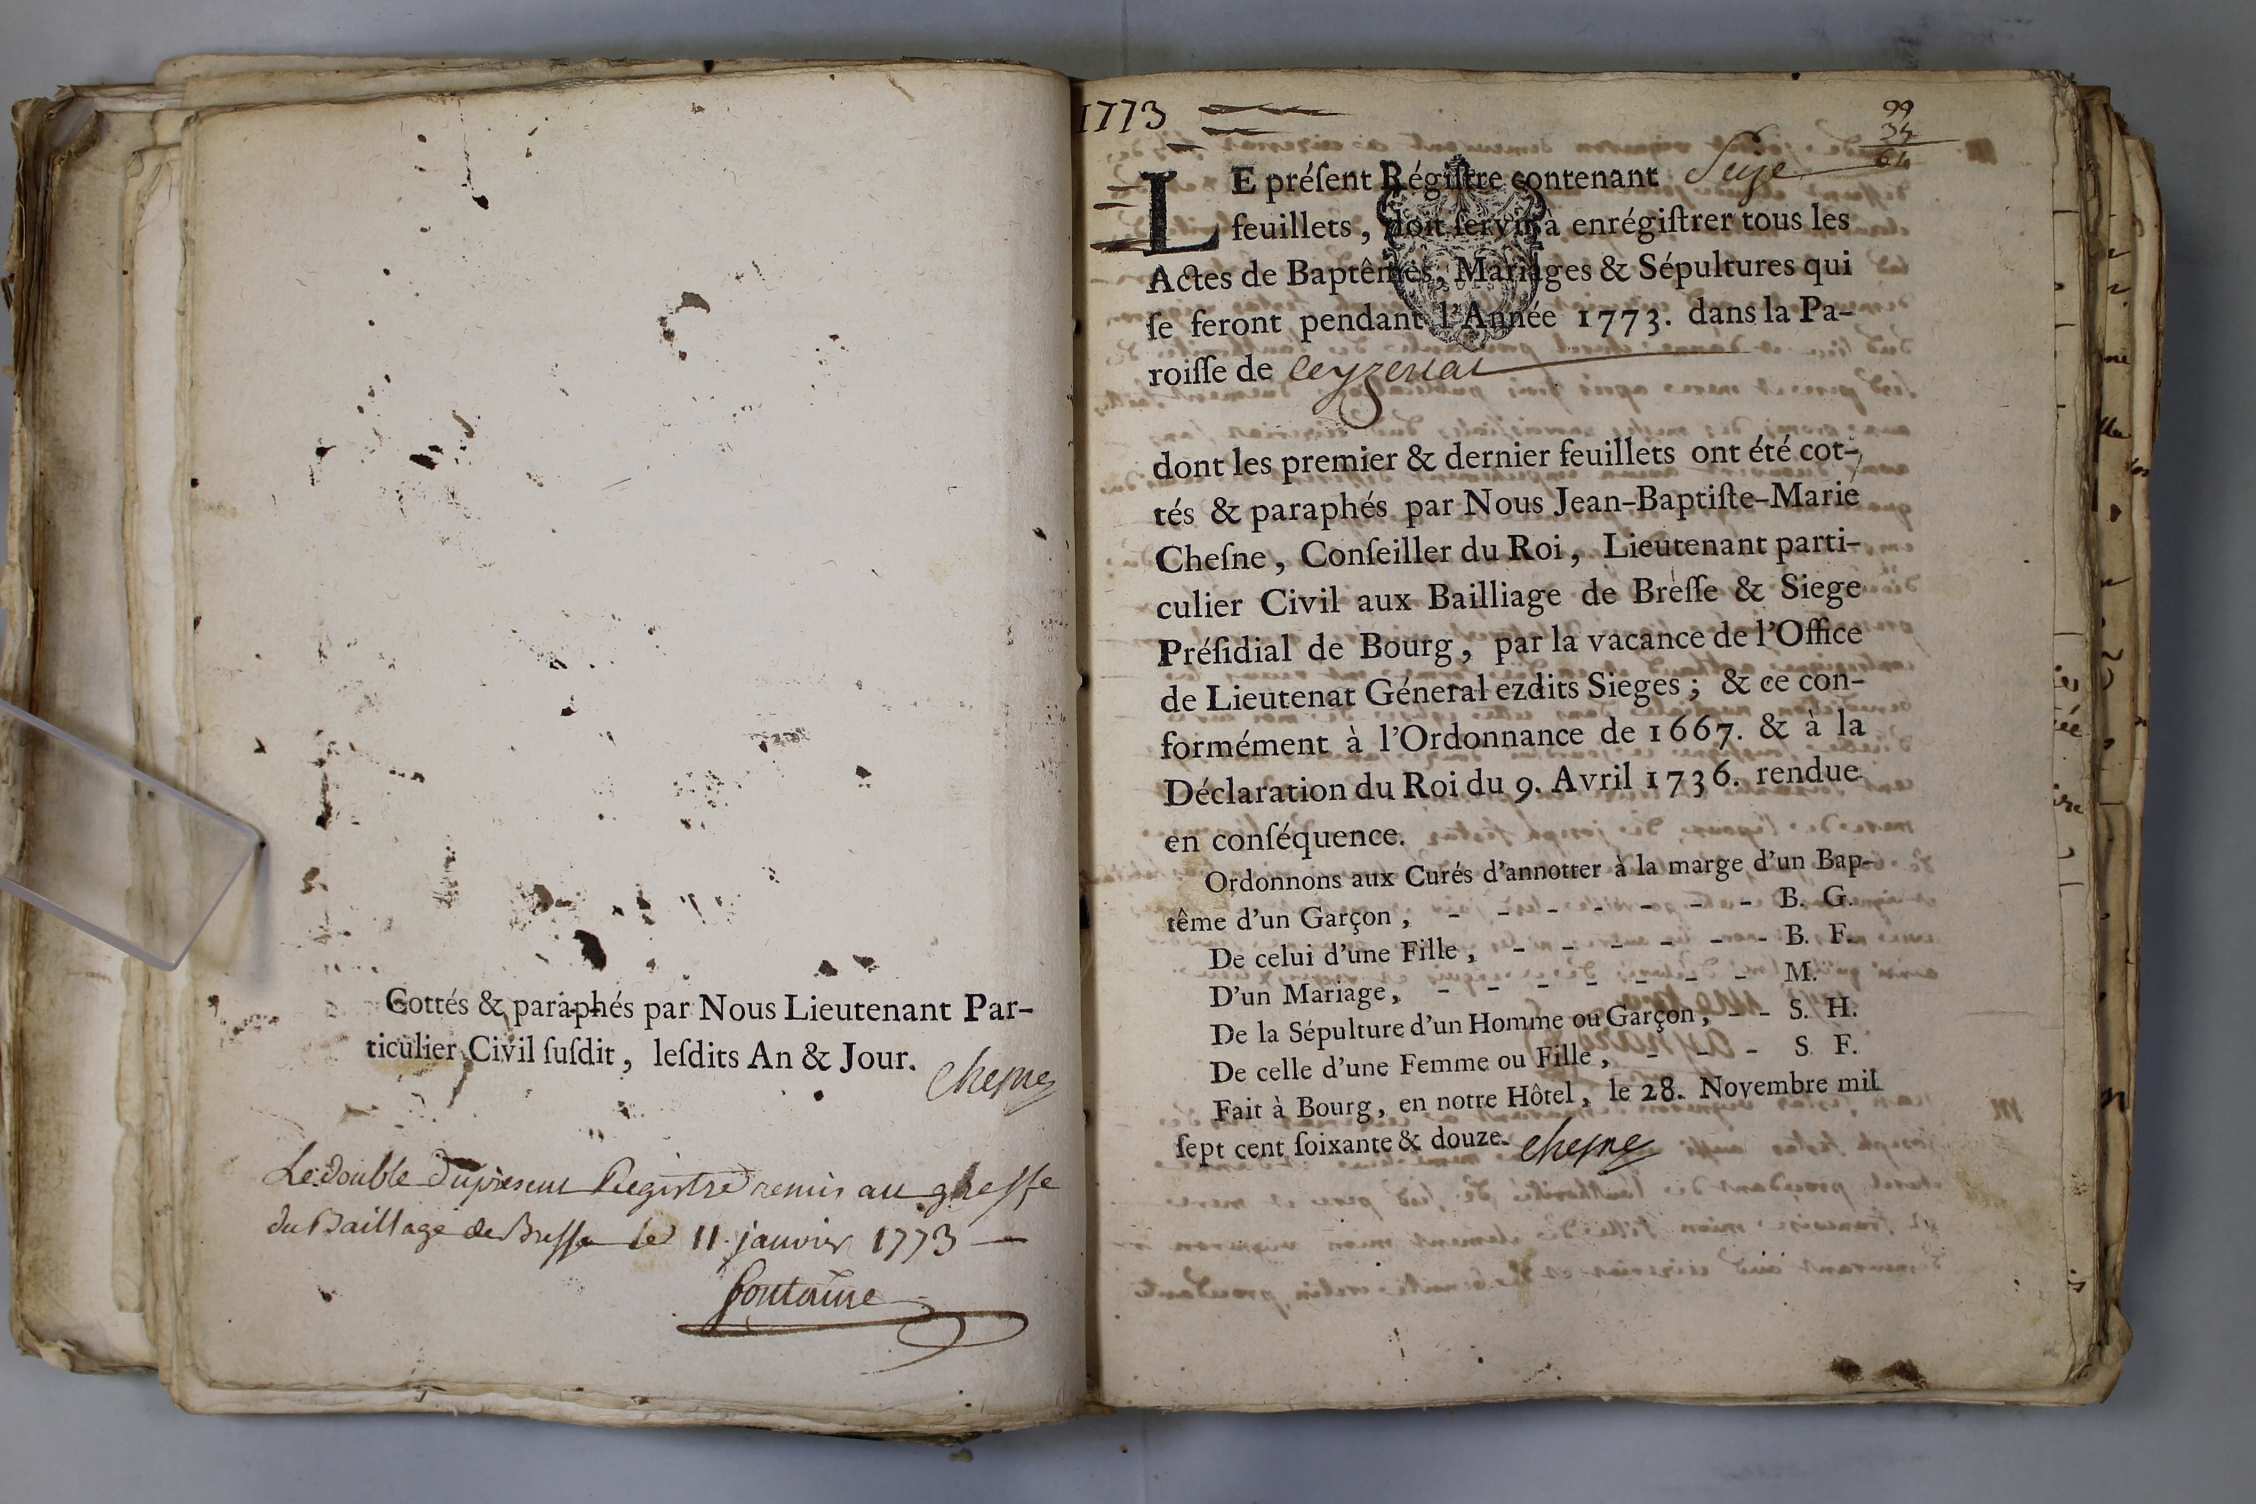 Cottés & paraphés par Nous Lieutenant Par-
ticulier Civil ſuſdit, leſdits An & Jour.
Chesne
Le double du present Registre remis au greffe
du Baillage de Bresse le 11 janvier 1773 —
fontaine
1773
99
34
64
LE préſent Régiſtre contenant Seize
feuillets, doit ſervir à enrégiſtrer tous les
Actes de Baptêmes, Mariages & Sépultures qui
ſe feront pendant l'Année 1773. dans la Pa-
roiſſe de Ceyzeriat
dont les premier & dernier feuillets ont été cot-
tés & paraphés par Nous Jean-Baptiſte-Marie
Cheſne, Conſeiller du Roi, Lieutenant parti-
culier Civil aux Bailliage de Breſſe & Siege
Préſidial de Bourg, par la vacance de l'Office
de Lieutenat Géneral ezdits Sieges; & ce con-
formément à l'Ordonnance de 1667. & à la
Déclaration du Roi du 9. Avril 1736. rendue
en conſéquence.
Ordonnons aux Curés d'annotter à la marge d'un Bap-
tême d'un Garçon, - - - - - - - B. G.
De celui d'une Fille, - - - - - - B. F.
D'un Mariage, - - - - - - - M.
De la Sépulture d'un Homme ou Garçon, - - S. H.
De celle d'une Femme ou Fille, - - - S. F.
Fait à Bourg, en notre Hôtel, le 28. Novembre mil
ſept cent ſoixante & douze. Chesne